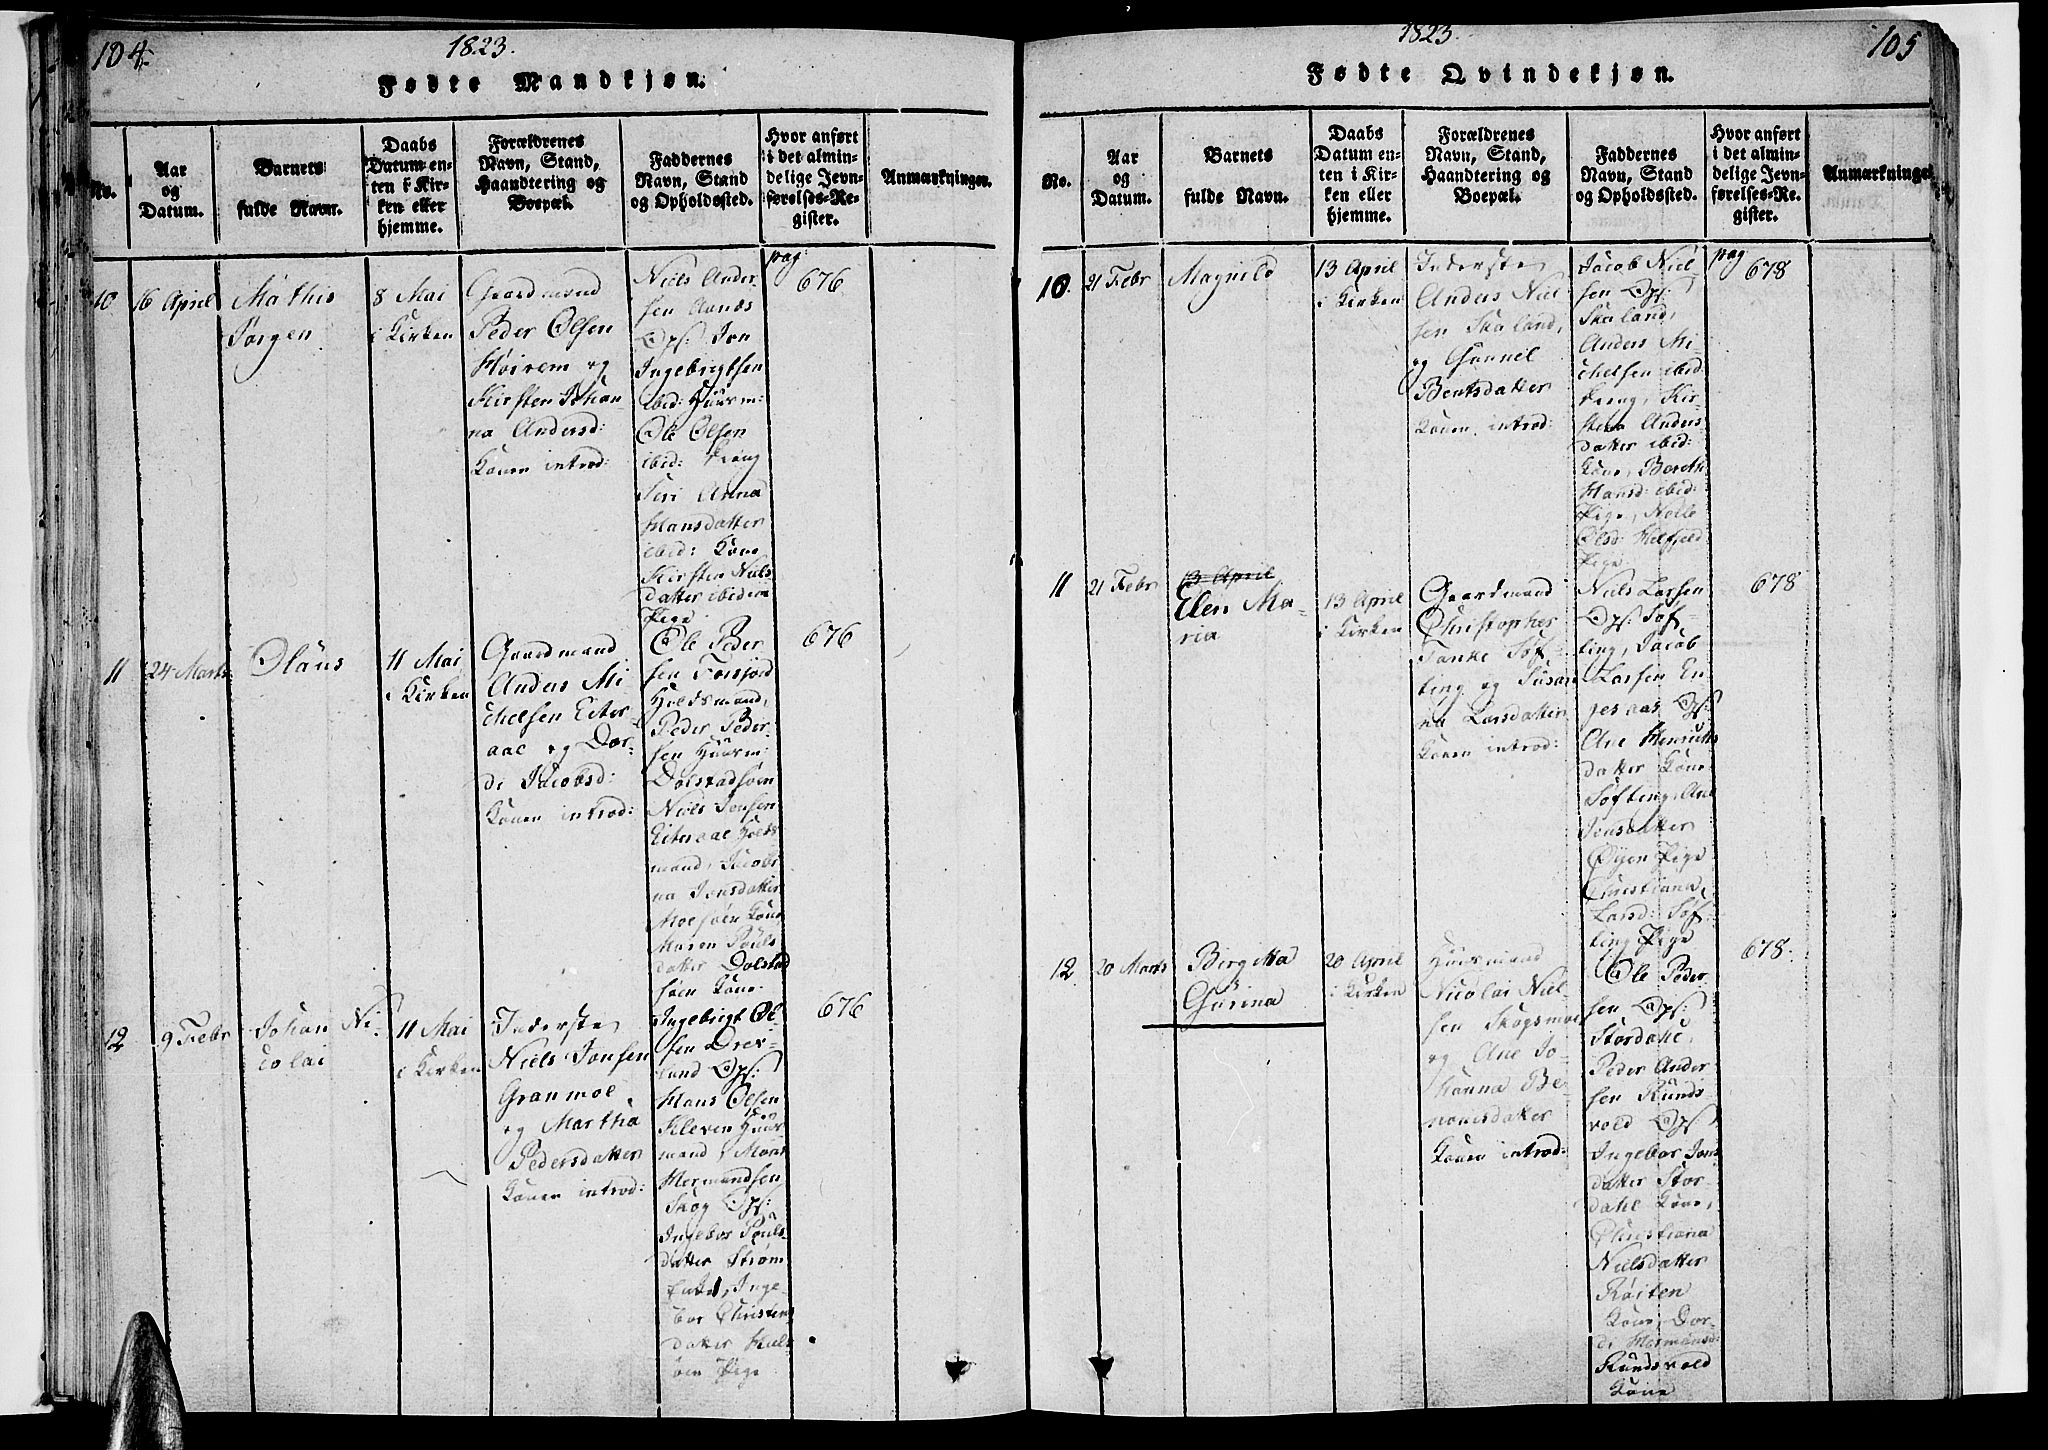 104.
1823.
Fødte Mandkjøn.
No.
Aar
og
Datum.
Barnets
fulde Navn.
Daabs
Datum en-
ten i Kir-
ken eller
hjemme.
Forældrenes
Navn, Stand,
Haandtering og
Boepæl.
Faddernes
Navn, Stand
og Opholdssted.
Hvor anført
i det almin-
delige Jevn-
førelses-Re-
gister.
Anmærkninger.
10.
16 April
Mathis
Jørgen
8 Mai
i Kirken
Gaardmand
Peder Olsen
Høirem og
Kirsten Johan-
na Andersd:
Konen introd:
Niels Ander-
sen Aanæs
Ops: Jon
Ingebrigtsen
ibid: Huusm:
Ole Olsen
ibid: Dreng
Siri Anna
Hansdatter
ibid: Kone
Kirsten Niels
datter ibidem
Pige
pag:
676
11
24 Marts
Olaus
11 Mai
i Kirken
Gaardmand
Anders Mi-
chelsen Eiter-
aae og Dor-
di Jacobsd:
Konen introd:
Ole Peder
sen Forsjord
Holdsmand,
Peder Peder-
sen Huusm:
Dolstadsøen
Niels Jonsen
Eiteraae Holds
mand, Jacobi
na Jonsdatter
Moesøen Kone
Maren Pouls
datter Dolstad
søen Kone.
676
12
9 Febr
Johan Ni-
colai
11 Mai
i Kirken
Inderste
Niels Jonsen
Granmoe
og Martha
Pedersdatter
Konen introd:
Ingebrigt Ol-
sen Drev-
land Ops:
Hans Olsen
Kleven Huus
mand, Mons
Hermandsen
Skog Ops:
Ingebor Pouls-
datter Strøm
Enke, Inge-
bor Christens
datter Huls
øen Pige
676
1823.
105
Fødte Qvindekjøn.
No.
Aar
og
Datum.
Barnets
fulde Navn.
Daabs
Datum en-
ten i Kir-
ken eller
hjemme.
Forældrenes
Navn, Stand,
Haandtering og
Boepæl.
Faddernes
Navn, Stand
og Opholdssted.
Hvor anført
i det almin-
delige Jevn-
førelses-Re-
gister.
Anmærkninge
10.
21 Febr
Magnild
13 April
i Kirken
Inderste
Anders Niel
sen Skaland,
og Gunnil
Bentsdatter
Konen introd:
Jacob Niel-
sen Ops:
Skaland,
Anders Mi-
chelsen ibid
Dreng, Kir-
sten Anders
datter ibid:
Kone, Bereth
Hansd: ibid:
Pige, Nille
Olsd: Helfjeld
Pige
pag
678
11
21 Febr
13 April
Elen Ma-
ria
13 April
i Kirken
Gaardmand
Christopher
Tanke Søf-
ting og Susan
na Larsdatter
Konen introd:
Niels Larsen
Ops: Søf-
ting, Jacob
Larsen En-
gesaas, Ops:
Ane Henriks
datter Kone
Søfting, Ane
Jensdatter
Øijen Pige
Christiana
Larsd: Søf-
ting Pige
678
12
20 Marts
Birgitta
Gurina
20 April
i Kirken
Huusmand
Nicolai Niel-
sen Skogsmoe
og Ane Jo-
hanna Be-
nonisdatter
Konen introd:
Ole Peder
sen Ops:
Stordahl,
Peder Ander
sen Runds-
vold Ops:
Ingebor Jons
datter Stor-
dahl Kone,
Christiana
Nielsdatter
Røiten
Kone, Dor-
di Hermansd:
Rundsvold
Kone
678.